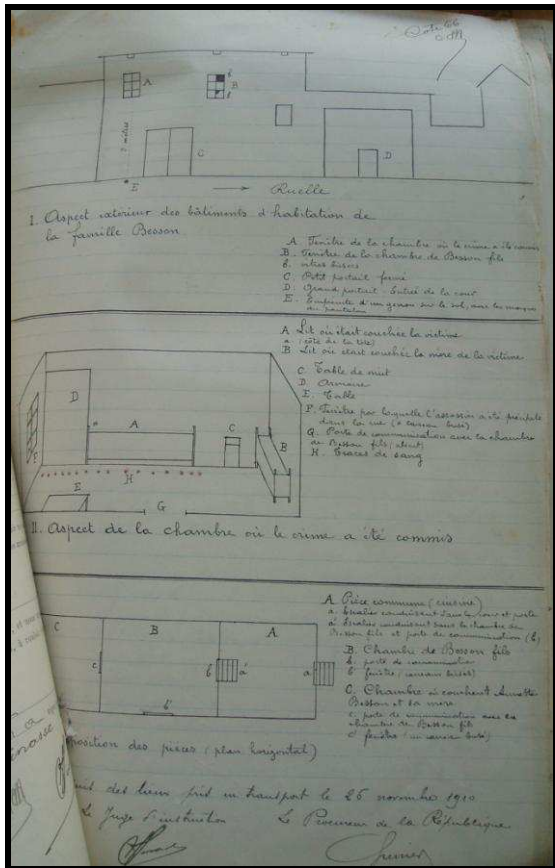 Côte 66
A
B
b
b
C
D
2 mètres
E
Ruelle
I. Aspect extérieur des bâtiments d'habitation de
la famille Besson
A. Fenêtre de la chambre où le crime a été commis
B. Fenêtre de la chambre de Besson fils
b. vitres brisées
C. Petit portail fermé
D. Grand portail. Entrée de la cour
E. Empreinte d'un genou sur le sol, avec les marques
du pantalon
A Lit où était couchée la victime
a (côté de la tête)
B Lit où était couchée la mère de la victime
C Table de nuit
D. Armoire
E. Table
F. Fenêtre par laquelle l'assassin a été précipité
dans la rue (a carreau brisé)
G. Porte de communication avec la chambre
de Besson fils
H. Traces de sang
D
a
A
C
B
F
H
E
G
II. Aspect de la chambre où le crime a été commis
A. Pièce commune (cuisine)
a. Escalier conduisant dans la cour et porte
a' Escalier conduisant dans la chambre de
Besson fils et porte de communication (b)
B. Chambre de Besson fils
b. porte de communication
b' fenêtre (carreaux brisés)
C. Chambre où couchent Annette
Besson et sa mère
c. porte de communication avec la
chambre de Besson fils
c' fenêtre (un carreau brisé)
C
B
A
c
b
a'
a
b'
position des pièces (plan horizontal)
des lieux pris en transport le 26 novembre 1910
Le Juge d'instruction Le Procureur de la République